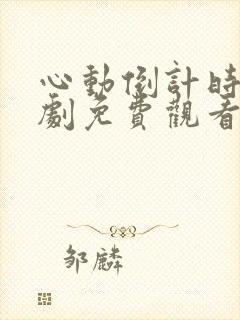 心動倒計時
劇免費觀看
邹麟